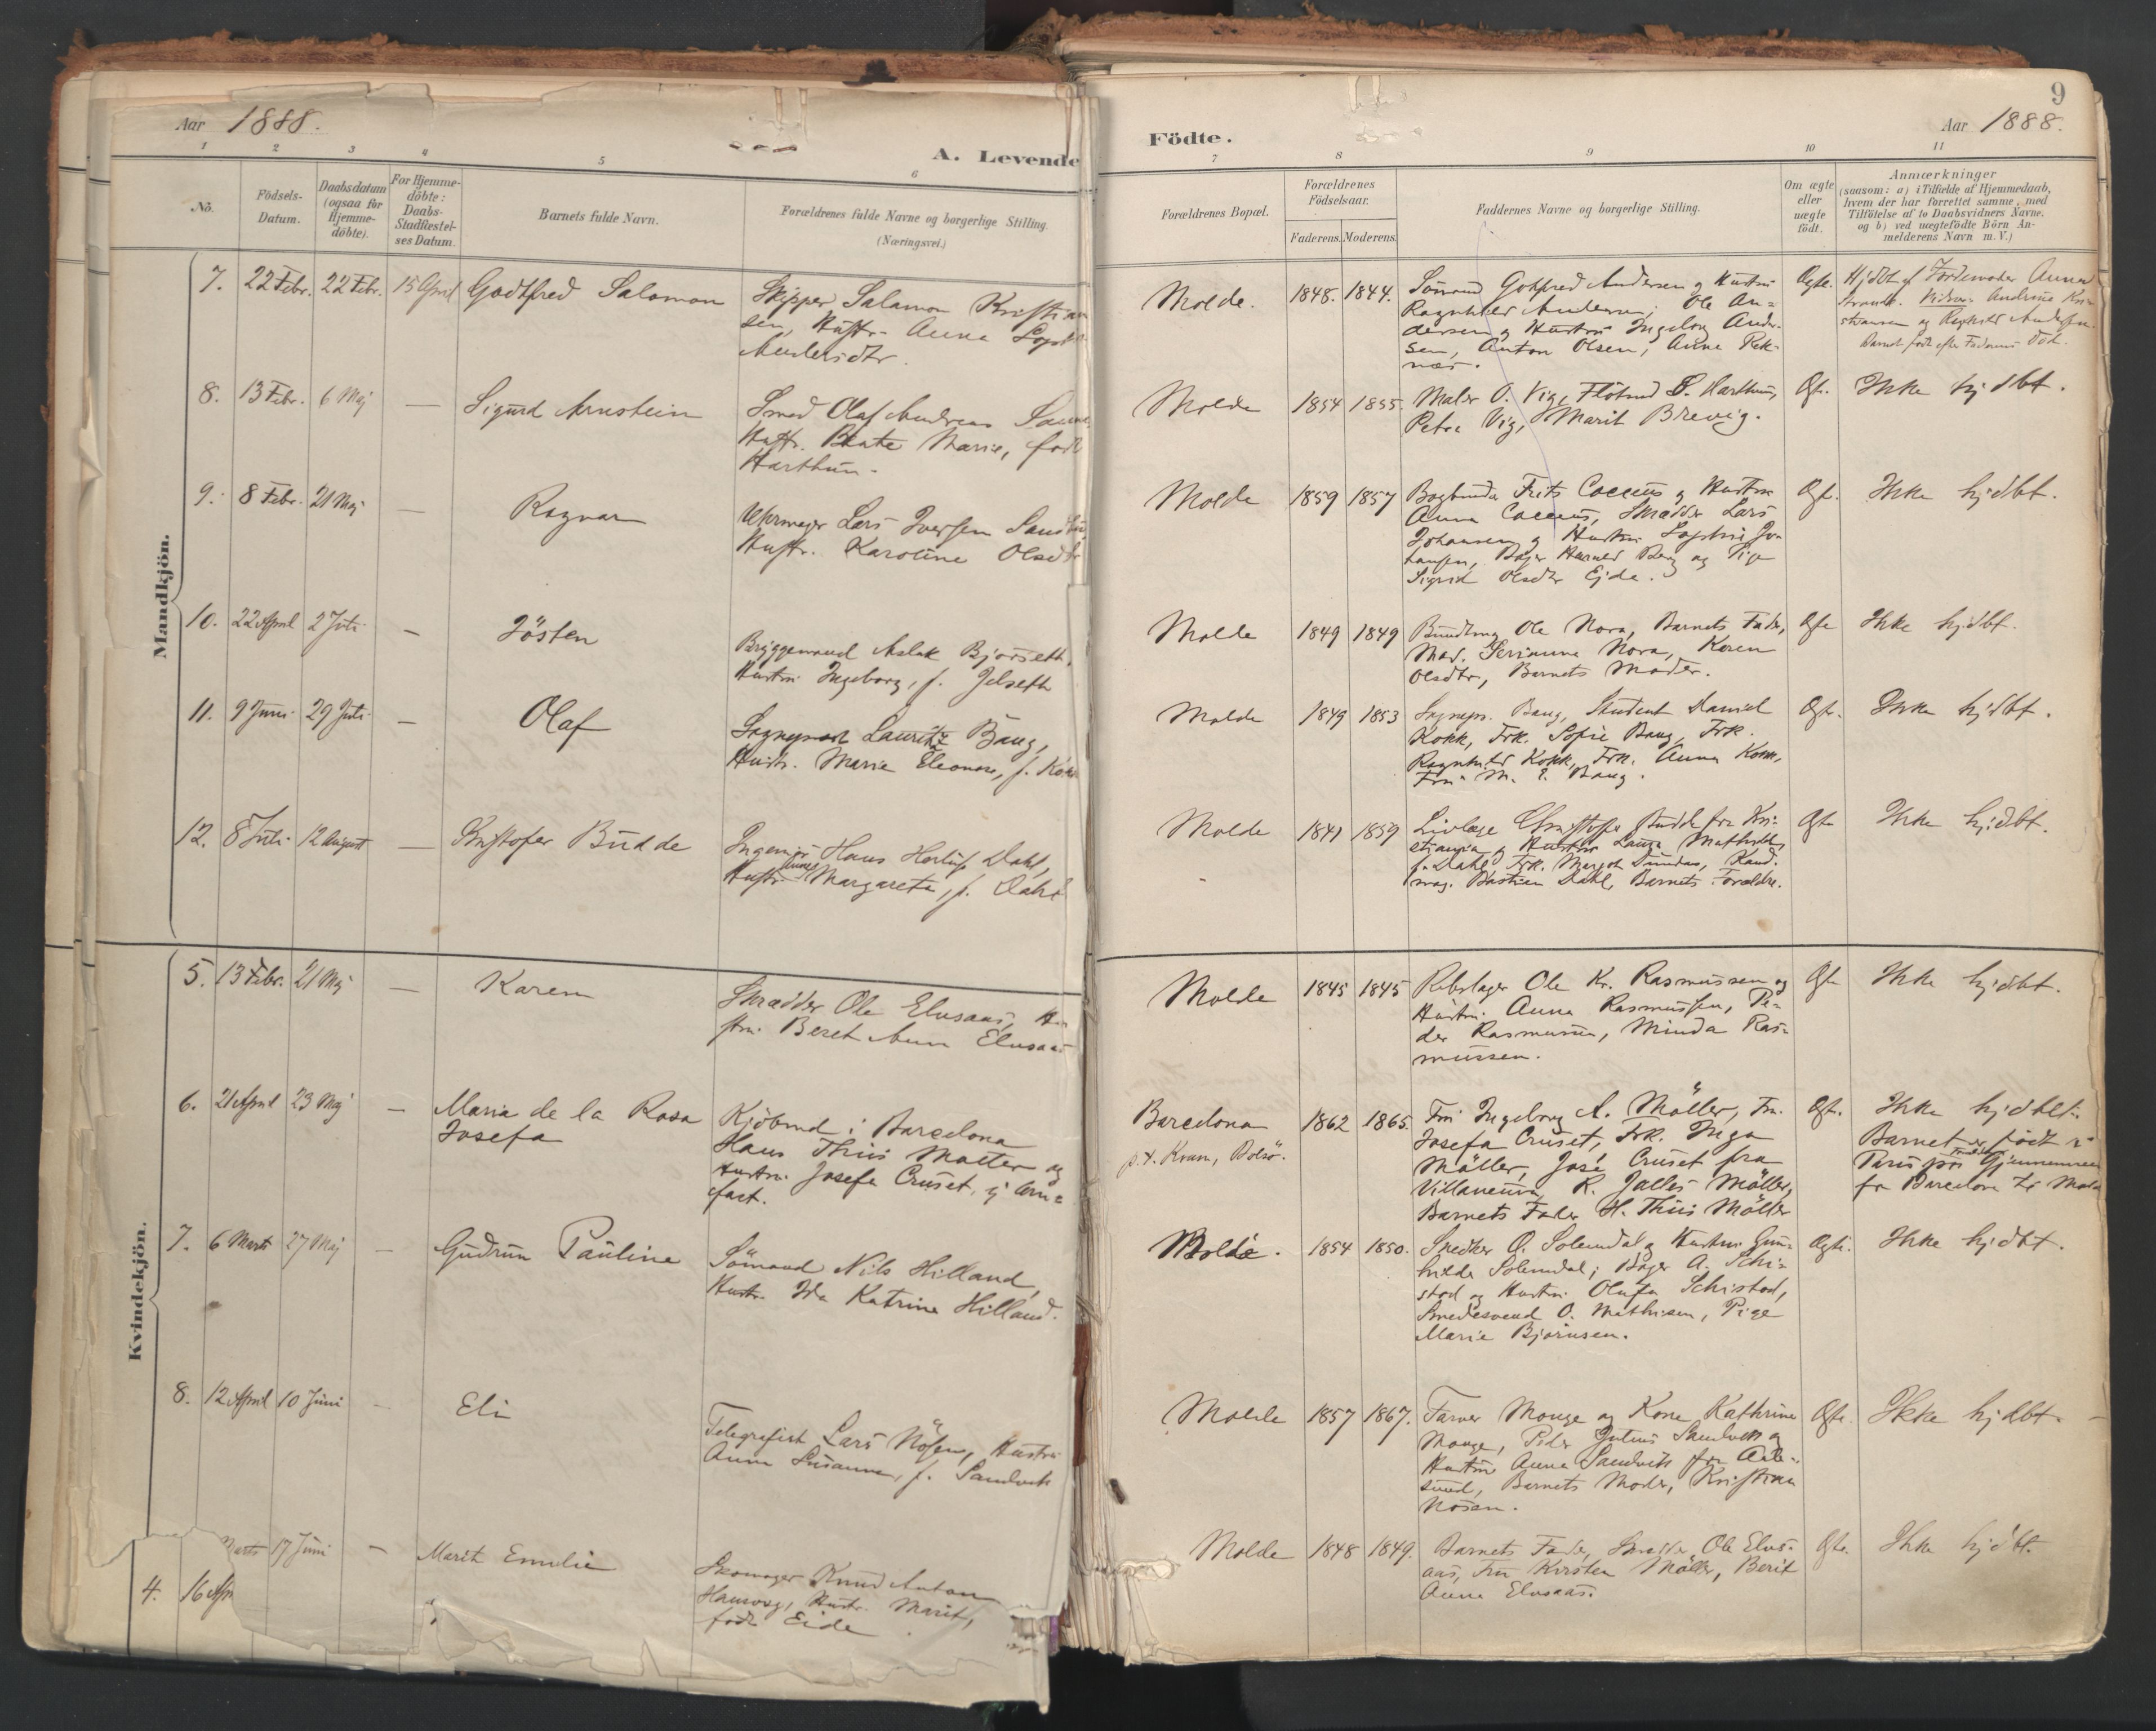 Aar 1888.
A. Levende
Födte.
Aar 1888.
9
1 2 3 4 5 6 7 8 9 10 11
No.
Födsels-
Datum.
Daabsdatum
(ogsaa for
Hjemme-
döbte).
For Hjemme-
döbte:
Daabs-
Stadfæstel-
ses Datum.
Barnets fulde Navn.
Forældrenes fulde Navne og borgerlige Stilling.
(Næringsvei.)
Forældrenes Bopæl.
Forældrenes
Födselsaar.
Faderens. Moderens.
Faddernes Navne og borgerlige Stilling.
Om ægte
eller
uægte
födt.
Anmærkninger
(saasom: a) i Tilfælde af Hjemmedaab,
hvem der har forrettet samme, med
Tilföielse af to Daabsvidners Navne.
og b) ved uægtefödte Börn An-
melderens Navn m. V.)
Mandkjön.
7. 22 Febr. 22 Febr. 15 April Godtfred Salomon
Skipper Salamon Kristian
sen, Hustr. Anna
Andersdtr.
Molde. 1848. 1844.
Sömand Gotfred Andersen og Hustru
Ragnhild Andersen, Ole An-
dersen og Hustru Ingeborg Ander-
sen, Anton Olsen, Anna Rek-
næs.
Ægte.
Hjdbt af Jordemoder Anna
Andrine Kri-
stiansen og Andersen.
Barnet födt efter Faderens Död.
8. 13 Febr. 6 Maj — Sigurd Arnstein
Smed Olaf Andreas
Hustr. Beate Marie, födt
Harthun.
Molde 1854 1855.
Maler O. Vig, Harthun,
Petra Vig, Marit Brevig.
Ægte.
Ikke hjdbt.
9. 8 Febr. 21 Maj — Ragnar
Uhrmager Lars Iversen
Hustr. Karoline Olsdtr
Molde 1859 1857
Bogbinder Frits Coccius og Hustru
Anna Coccius, Skrædder Lars
Johansen og Hustru Jo-
hansen, Berg og Pige
Sigrid Olsdtr Ejde.
Ægte.
Ikke hjdbt.
10. 22 April 2 Juli — Jösten
Bryggemand Aslak Bjorseth,
Hustru Ingeborg, f. Jelseth
Molde 1849 1849
Ole Nora, Barnets Fader,
Mad. Serianna Nora, Karen
Olsdtr, Barnets Moder.
Ægte
Ikke hjdbt.
11. 9 Juni 29 Juli — Olaf
Sogneprest Lauritz Baug,
Hustr. Marie Eleonore, f. Kokk
Molde 1849 1853
Sognepr. Baug, Student Daniel
Kokk, Frk. Sofie Baug, Frk.
Ragnhild Kokk, Frk. Anna Kokk,
Fru M. E. Baug.
Ægte.
Ikke hjdbt.
12. 8 Juli 12 August — Kristofer Budde
Ingeniör Hans Herluf Dahl,
Hustr. Margarete, f. Dahl
Molde 1841 1859
Livlæge Christoffer Budde fra Kri-
stiania og Hustru Laura Mathilde
f. Dahl, Frk. Margot Dundas, Kand.
mag. Bastian Dahl, Barnets Forældre.
Ægte
Ikke hjdbt.
Kvindekjön.
5. 13 Febr. 21 Maj — Karen
Skrædder Ole Elusaas, Hu-
stru Beret Anna Elusaas
Molde 1845 1845
Rebslager Ole Kr. Rasmussen og
Hustru Anna Rasmussen, Pe-
der Rasmussen, Minda Ras-
mussen.
Ægte
Ikke hjdbt.
6. 21 April 23 Maj — Maria de la Rosa
Josefa
Kjöbmd i Barcelona
Hans Thiis Möller og
Hustru Josefa Cruset,
Barcelona
p.t. Kvam, Bolsö.
1862 1865.
Fru Ingeborg A. Möller, Fru
Josefa Cruset, Frk. Inga
Möller, José Cruset fra
Villanueva, R. Jalles Möller,
Barnets Fader H. Thiis Möller
Ægte.
Ikke hjdbt.
Barnet er födt i
Paris paa Gjennemreise
fra Barcelona til Molde
7. 6 Marts 27 Maj — Gudrun Pauline
Sömand Nils Hilland,
Hustr. Ida Katrine Hilland.
Molde. 1854 1850.
Snedker O. Solemdal og Hustru Gun-
hilda Solemdal; Bager A. Schi-
stad og Hustru Olufa Schistad,
Smedesvend O. Mathisen, Pige
Marie Bjørnsen.
Ægte.
Ikke hjdbt.
8. 12 April 10 Juni — Eli
Telegrafist Lars Nösen, Hustru
Anna Susanna, f. Sandvik
Molde 1857 1867.
Farver Monge og Kone Kathrine
Monge, Peder Julius Sandvik og
Hustru Anna Sandvik fra Aale-
sund, Barnets Moder, Kristina
Nösen.
Ægte.
Ikke hjdbt. —
Marts 17 Juni — Marit Emilie
Skomager Knud Anton
Hustr. Marit,
födt Eide
Molde 1848 1849.
Barnets Fader, Skrædder Ole Elus-
aas, Fru Kirsten Möller, Berit
Anna Elusaas.
Ægte.
Ikke hjdbt.
4. 16 Apr